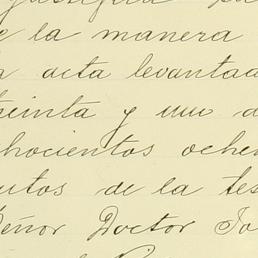 justifica
de la manera
a acta levantad
treinta y uno d
chocientos oche
utos de la tes
Señor Doctor Jo